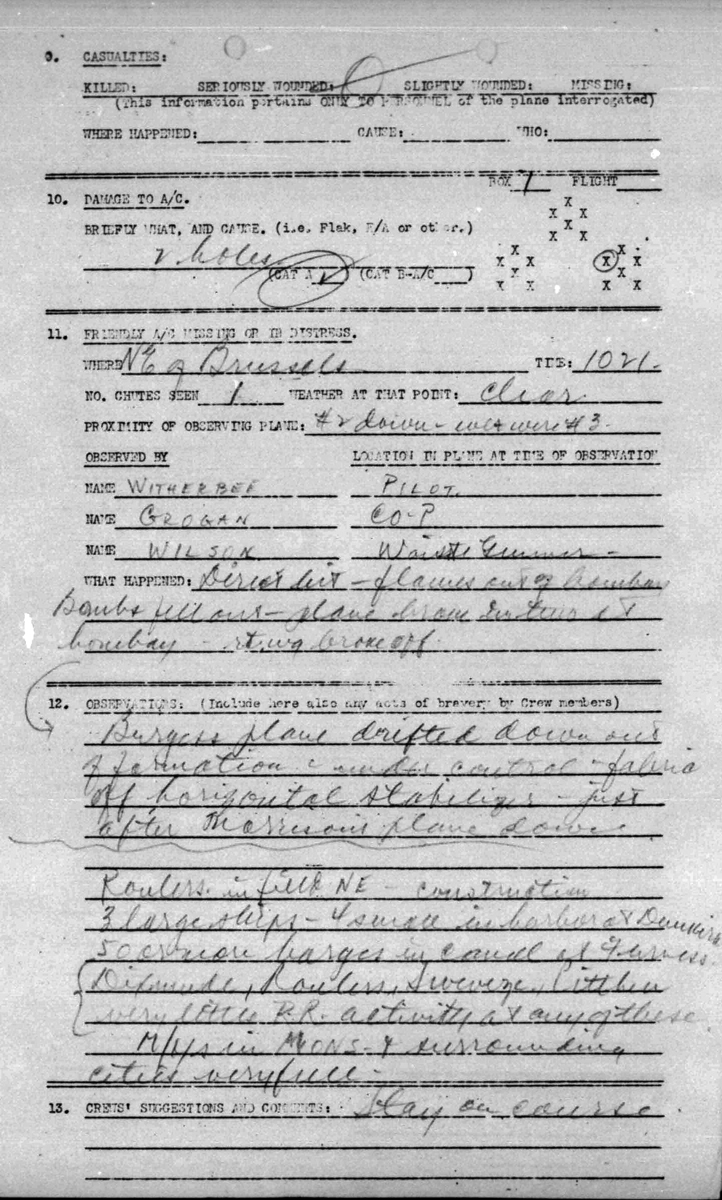 9. CASUALTIES:
KILLED: SERIOUSLY WOUNDED: 0 SLIGHTLY WOUNDED: MISSING:
(This information pertains ONLY TO PERSONNEL of the plane interrogated)
WHERE HAPPENED: CAUSE: WHO:
BOX 1 FLIGHT
10. DAMAGE TO A/C.
BRIEFLY WHAT, AND CAUSE. (i.e. Flak, E/A or other.)
2 holes
(CAT A ✓) (CAT B-A/C )
X
X X
X
X X
X X
X X X X
X X
X X X X
11. FRIENDLY A/C MISSING OR IN DISTRESS.
WHERE NE of Brussels TIME: 1021.
NO. CHUTES SEEN 1 WEATHER AT THAT POINT: Clear
PROXIMITY OF OBSERVING PLANE: #2 down - were #3.
OBSERVED BY LOCATION IN PLANE AT TIME OF OBSERVATION
NAME WITHERBEE PILOT.
NAME GROGAN CO-P
NAME WILSON Waist Gunner -
WHAT HAPPENED: Direct hit - flames out of bombay
Bombs fell out - plane broke in two at
bombay - rt. wg broke off.
12. OBSERVATIONS: (Include here also any acts of bravery by Crew members)
Burgess plane drifted down out
of formation - under control - fabric
off horizontal stabilizer - just
after Morrison's plane down
Roulers. in field NE - construction
3 large ships - 4 small in harbor at Dunkirk
50 or more barges in canal at Furness.
Dixmude, Roulers, Sweveze, Pitthem
very little R.R. activity at any of these
M/ys in MONS & surrounding
cities very full -
13. CREWS' SUGGESTIONS AND COMMENTS: Stay on course